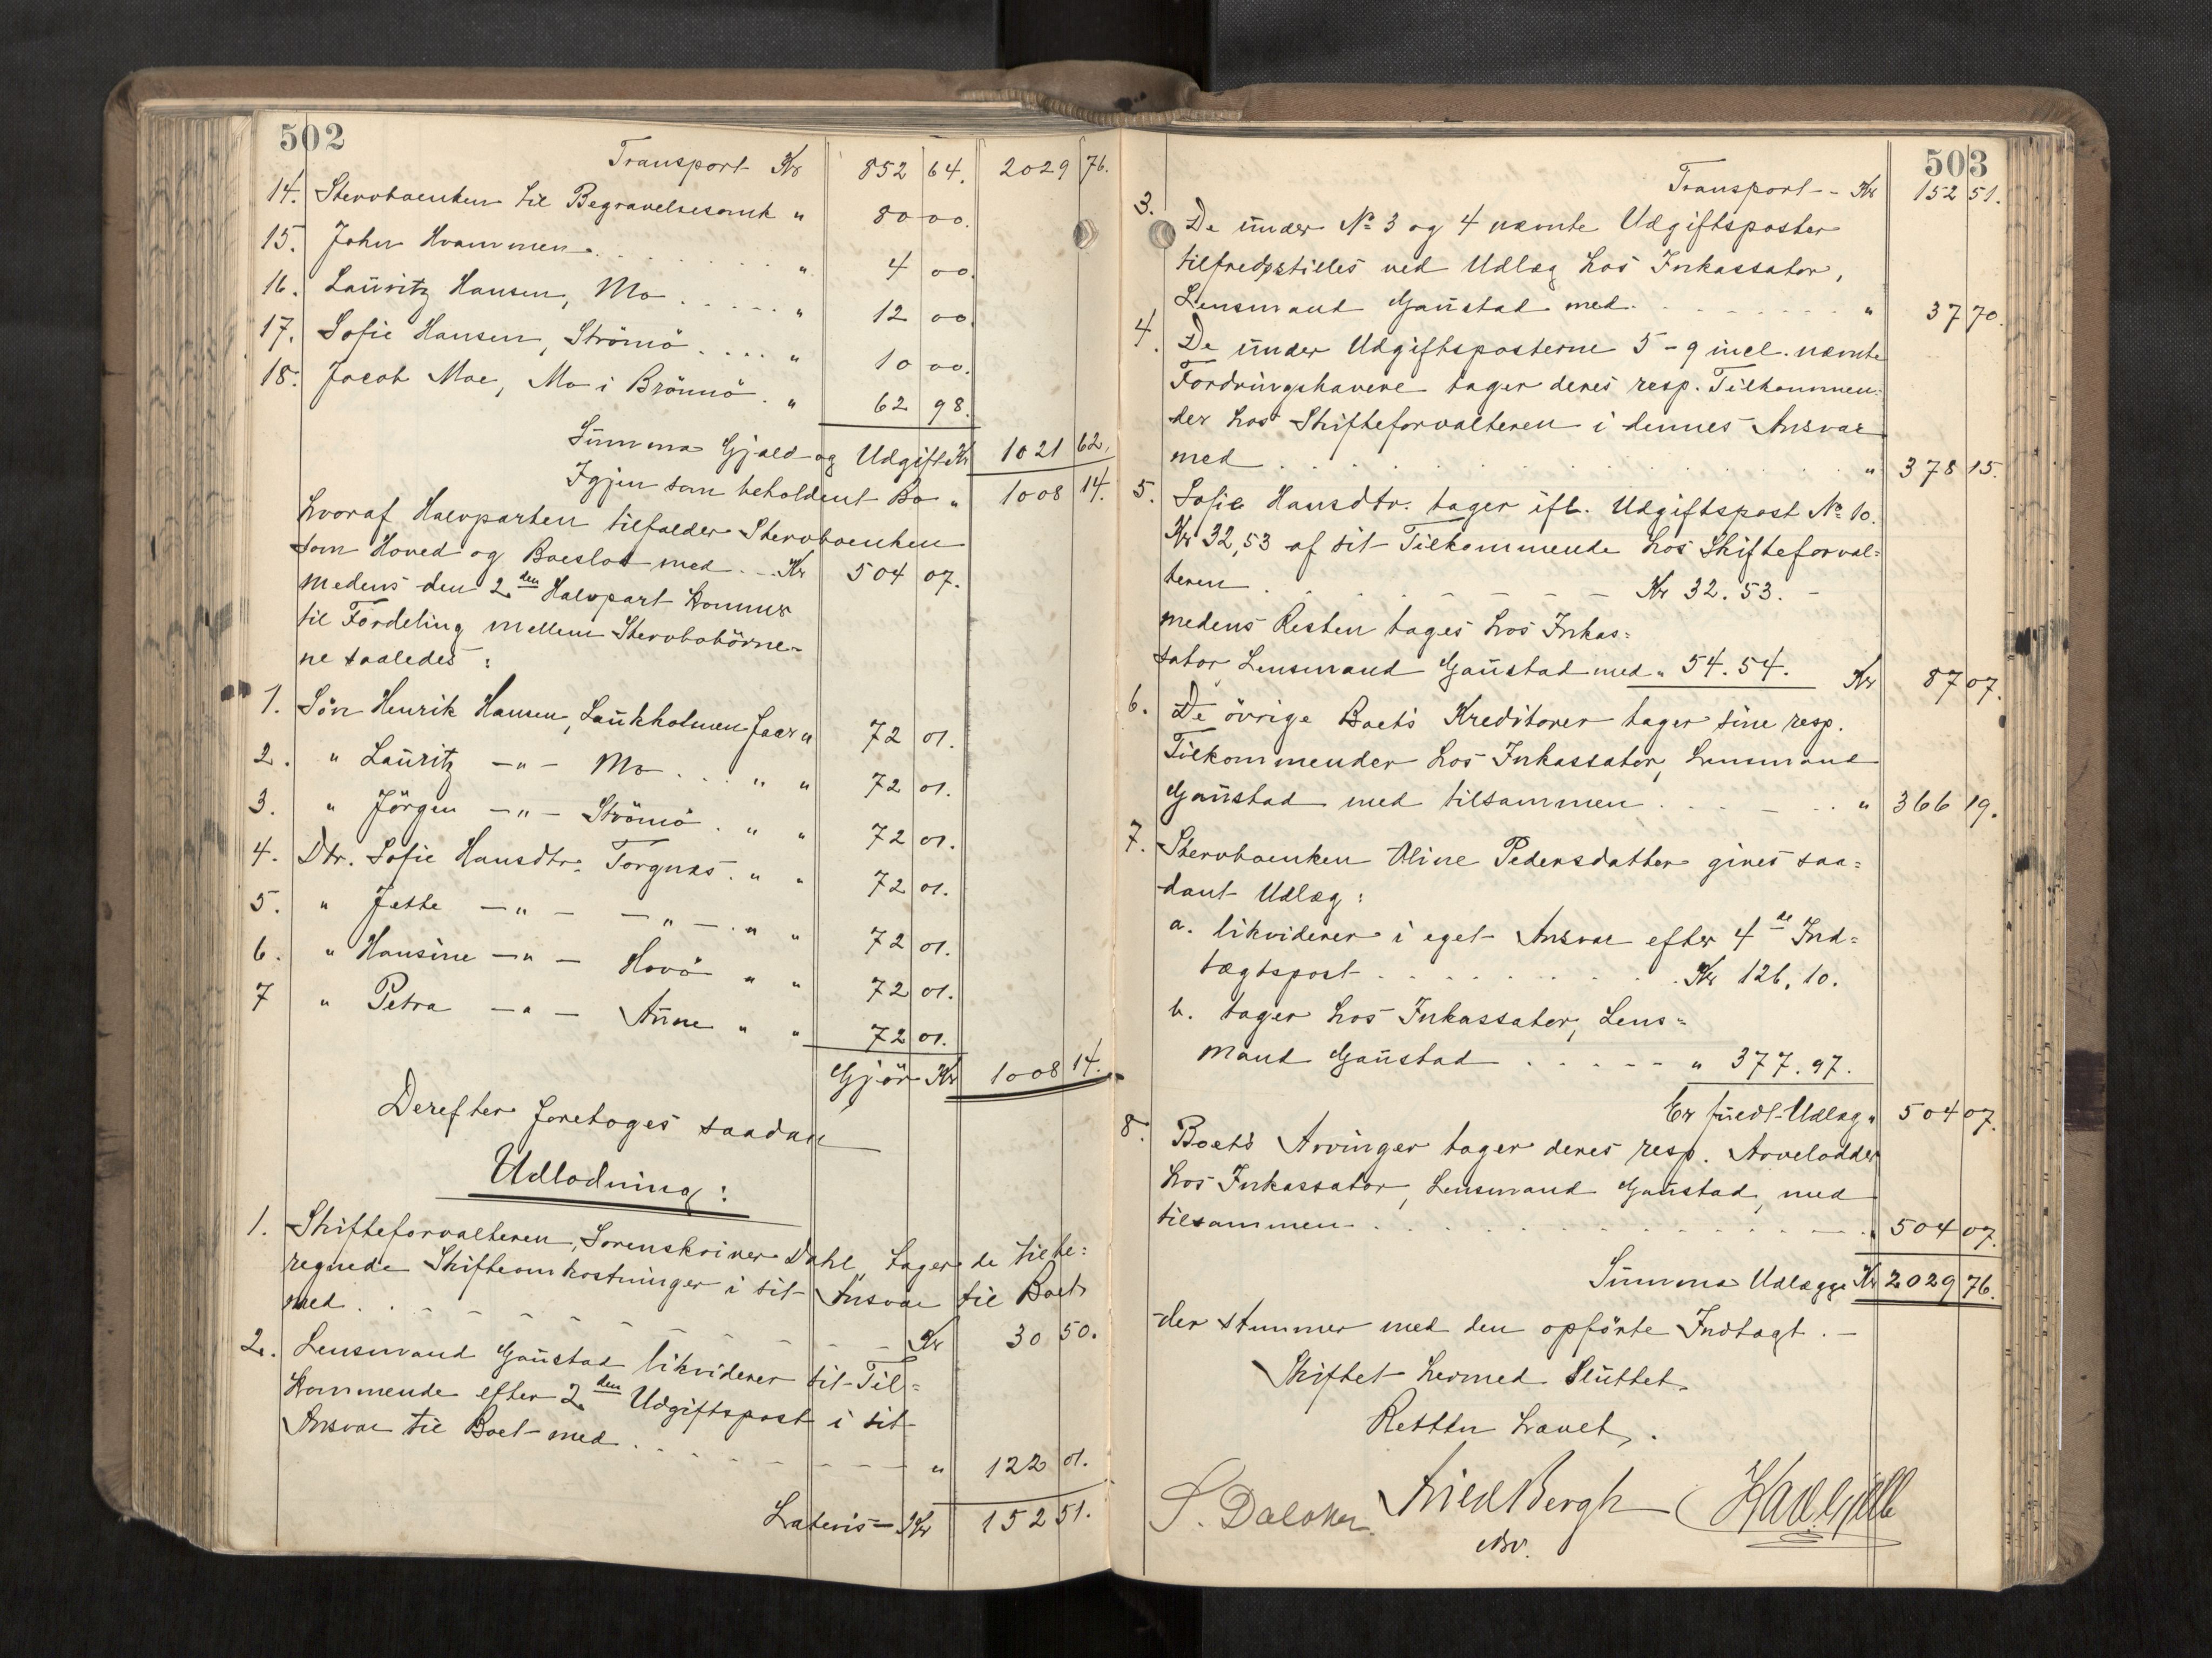 502
Transport Kr 852 64. 2029 76.
14. Stervboenken til Begravelsesomk " 80 00.
15. John Hvammen . . . . . . . " 4 00.
16. Lauritz Hansen, Mo . . . . . " 12 00.
17. Sofie Hansen, Strömö . . . . " 10 00.
18. Jacob Moe, Mo i Brönnö . " 62 98.
Summa Gjæld og Udgift Kr 1021 62.
Igjen som beholdent Bo " 1008 14.
hvoraf Halvparten tilfalder Stervboenken
som Hoved og Boeslod med . . Kr 504 07.
medens den 2den Halvpart kommer
til Fordeling mellem Stervbobörne-
ne saaledes:
1. Sön Henrik Hansen, Laukholmen faar " 72 01.
2. " Lauritz -"- Mo . . . " " 72 01.
3. " Jörgen -"- Strömö . " " 72 01.
4. Dtr. Sofie Hansdtr. Torgnæs . " " 72 01.
5. " Jette -"- -"- . " " 72 01.
6. " Hansine -"- Havö " " 72 01.
7 " Petra -"- Aune " " 72 01.
Gjör Kr 1008 14.
Derefter foretoges saadan
Udlodning:
1. Skifteforvalteren, Sorenskriver Dahl, tager de tilbe=
regnede Skifteomkostninger i sit Ansvar til Boet
med . . . . . . . Kr 30 50.
2. Lensmand Gaustad likviderer sit Til=
kommende efter 2den Udgiftspost i sit
Ansvar til Boet med . . . . . . " 122 01.
Lateris - Kr 152 51.
503
Transport - Kr 152 51.
3. De under No 3 og 4 nævnte Udgiftsposter
tilfredsstilles ved Udlæg hos Inkassator,
Lensmand Gaustad med . . . . . . . " 37 70.
4. De under Udgiftsposterne 5-9 incl. nævnte
Fordringshavere tager deres resp. Tilkommen=
der hos Skifteforvalteren i dennes Ansvar
med . . . . . . . . . . . " 378 15.
5. Sofie Hansdtr. tager ifl. Udgiftspost No 10.
Kr 32,53 af sit Tilkommende hos Skifteforval=
teren . . . . . . . Kr 32.53. -
medens Resten tages hos Inkas=
sator Lensmand Gaustad med " 54.54. Kr 87 07.
6. De övrige Boets Kreditorer tager sine resp.
Tilkommender hos Inkassator, Lensmand
Gaustad med tilsammen . . . . . " 366 19.
7. Stervboenken Oline Pedersdatter gives saa=
dant Udlæg:
a. likviderer i eget Ansvar efter 4de Ind=
tægtspost . . . . . . . . . Kr 126.10.
b. tager hos Inkassator, Lens=
mand Gaustad . . . . . " 377.97.
Er fuldt Udlæg " 504 07.
8. Boets Arvinger tager deres resp. Arvelodder
hos Inkassator, Lensmand Gaustad, med
tilsammen . . . . . . . . . . " 504 07.
Summa Udlægge Kr 2029 76.
der stemmer med den opförte Indtægt. -
Skiftet hermed Sluttet.
Retten hævet.
S. Daloker